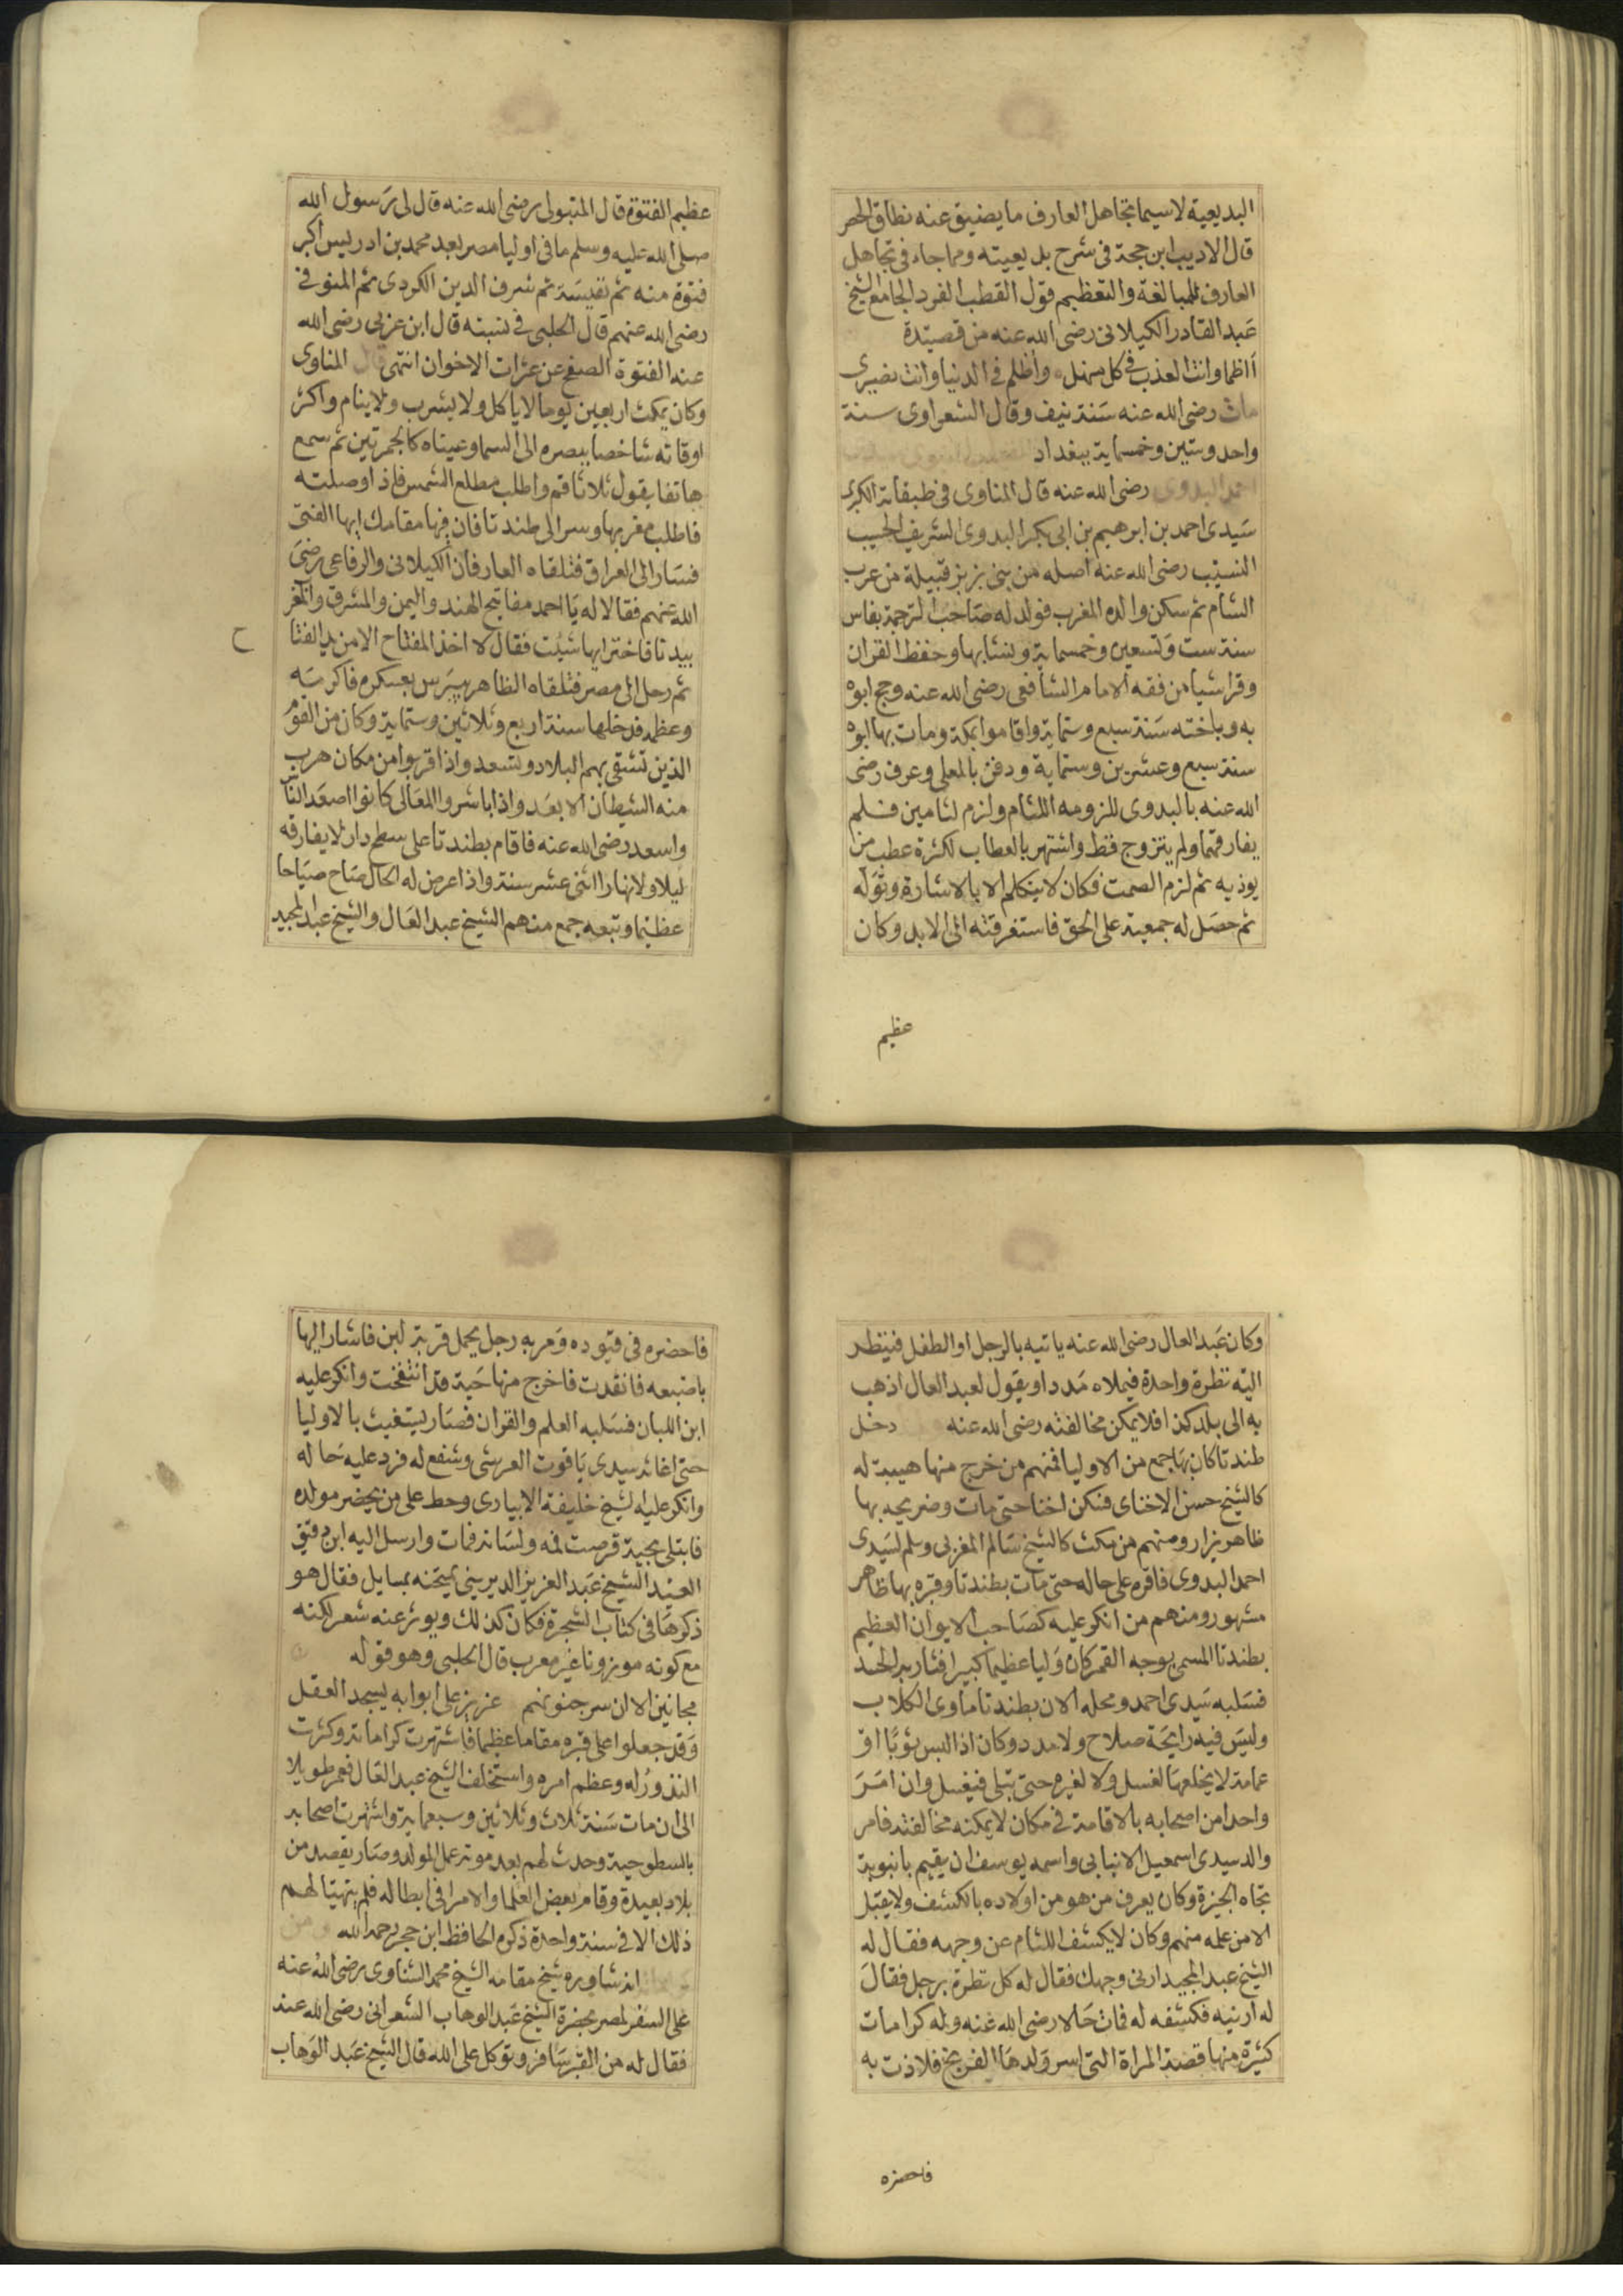 البديعية لاسيما تجاهل العارف ما يضيق عنه نطاق الحصر
قال الاديب ابن حجة فى شرح بديعيته ومما جاء فى تجاهل
العارف للمبالغة والتعظيم قول القطب الفرد الجامع الشيخ
عبد القادر الكيلانى رضى الله عنه من قصيدة
أاظما وانت العذب فى كل منهل وأظلم فى الدنيا وانت نصيرى
مات رضى الله عنه سنة نيف وقال الشعراوى سنة
واحد وستين وخمسماية ببغداد
احمد البدوى رضى الله عنه قال المناوى فى طبقاته الكبرى
سيدى احمد بن ابرهيم بن ابى بكر البدوى الشريف الحسيب
النسيب رضى الله عنه اصله من بنى بزبز قبيلة من عرب
الشام ثم سكن والده المغرب فولد له صاحب الترجمة بفاس
سنة ست وتسعين وخمسماية ونشا بها وحفظ القران
وقرا شيا من فقه الامام الشافعى رضى الله عنه وحج ابوه
به وباخته سنة سبع وستماية واقاموا بمكة ومات بها ابوه
سنة سبع وعشرين وستماية ودفن بالمعلى وعرف رضى
الله عنه بالبدوى للزومه اللثام ولزم لثامين فلم
يفارقهما ولم يتزوج قط واشتهر بالعطاب لكثرة عطب من
يوذيه ثم لزم الصمت فكان لا يتكلم الا بالاشارة وتوله
ثم حصل له جمعية على الحق فاستغرقته الى الابد وكان
عظيم
عظيم الفتوة قال المتبولى رضى الله عنه قال لى رسول الله
صلى الله عليه وسلم ما فى اوليا مصر بعد محمد بن ادريس اكبر
فتوة منه ثم نفيسة ثم شرف الدين الكردى ثم المنوفى
رضى الله عنهم قال الحلبى فى نسبته قال ابن عربى رضى الله
عنه الفتوة الصفح عن عثرات الاخوان انتهى قال المناوى
وكان يمكث اربعين يوما لا ياكل ولا يشرب ولا ينام واكثر
اوقاته شاخصا ببصره الى السما وعيناه كالجمرتين ثم سمع
هاتفا يقول ثلاثا قم واطلب مطلع الشمس فاذا وصلته
فاطلب مغربها وسر الى طندتا فان فيها مقامك ايها الفتى
فسار الى العراق فتلقاه العارفان الكيلانى والرفاعى رضى
الله عنهم فقالا له يا احمد مفاتيح الهند واليمن والمشرق والمغر
بيدنا فاختر ايها شيت فقال لا اخذ المفتاح الا من يد الفتا
ح
ثم رحل الى مصر فتلقاه الظاهر بيبرس بعسكره فاكرمه
وعظمه فدخلها سنة اربع وثلاثين وستماية وكان من القوم
الذين تشقى بهم البلاد وتسعد واذا قربوا من مكان هرب
منه الشيطان الابعد واذا باشروا المعالى كانوا اصعد الناس
واسعد رضى الله عنه فاقام بطندتا على سطح دار لا يفارقه
ليلا ولا نهارا اثنى عشر سنة واذا عرض له الحال صاح صياحا
عظيما وتبعه جمع منهم الشيخ عبد العال والشيخ عبد المجيد
وكان عبد العال رضى الله عنه ياتيه بالرجل او الطفل فينظر
اليه نظرة واحدة فيملاه مددا ويقول لعبد العال اذهب
به الى بلد كذا فلا يمكن مخالفته رضى الله عنه دخل
طندتا كان بها جمع من الاوليا فمنهم من خرج منها هيبة له
كالشيخ حسن الاخناى فسكن اخنا حتى مات وضريحه بها
ظاهر يزار ومنهم من مكث كالشيخ سالم المغربى وسلم لسيدى
احمد البدوى فاقره على حاله حتى مات بطندتا وقبره بها ظاهر
مشهور ومنهم من انكر عليه كصاحب الايوان العظيم
بطندتا المسمى بوجه القمر كان وليا عظيما كبيرا فثار به الحسد
فسلبه سيدى احمد ومحله الان بطندتا ماوى الكلاب
وليس فيه رايحة صلاح ولا مدد وكان اذا لبس ثوبا او
عمامة لا يخلعها لغسل ولا لغيره حتى تبلى فيغسل وان امر
واحدا من اصحابه بالاقامة فى مكان لا يمكنه مخالفته فامر
والد سيدى اسمعيل الانبابى واسمه يوسف ان يقيم بانبوبة
تجاه الجيزة وكان يعرف من هو من اولاده بالكشف ولا يقبل
الا من علمه منهم وكان لا يكشف اللثام عن وجهه فقال له
الشيخ عبد المجيد ارنى وجهك فقال له كل نظرة برجل فقال
له ارنيه فكشفه له فمات حالا رضى الله عنه وله كرامات
كثيرة منها قصة المراة التى اسر ولدها الفرنج فلاذت به
فاحضره
فاحضره فى قيوده ومر به رجل يحمل قربة لبن فاشار اليها
باصبعه فانقدت فاخرج منها حية قد انتفخت وانكر عليه
ابن اللبان فسلبه العلم والقران فصار يستغيث بالاوليا
حتى اغاثه سيدى ياقوت العرشى وشفع له فرد عليه حاله
وانكر عليه الشيخ خليفة الابيارى وحط على من يحضر مولده
فابتلى بحية قرصت فمه ولسانه فمات وارسل اليه ابن دقيق
العيد الشيخ عبد العزيز الديرينى يمتحنه بمسايل فقال هو
ذكرها فى كتاب الشجرة فكان كذلك ويوثر عنه شعر لكنه
مع كونه موزونا غير معرب قال الحلبى وهو قوله
مجانين الا ان سر جنونهم عزيز على ابوابه يسجد العقل
وقد جعلوا على قبره مقاما عظيما فاشتهرت كراماته وكثرت
النذور له وعظم امره واستخلف الشيخ عبد العال فعمر طويلا
الى ان مات سنة ثلاث وثلاثين وسبعماية واشتهرت اصحابه
بالسطوحية وحدث لهم بعد موته عمل المولد وصار يقصد من
بلاد بعيدة وقام بعض العلما والامرا فى ابطاله فلم يتهيا لهم
ذلك الا فى سنة واحدة ذكره الحافظ ابن حجر رحمه الله ومن
انه شاوره شيخ مقامه الشيخ محمد الشناوى رضى الله عنه
على السفر لمصر بحضرة الشيخ عبد الوهاب الشعرانى رضى الله عنه
فقال له من القبر سافر وتوكل على الله قال الشيخ عبد الوهاب